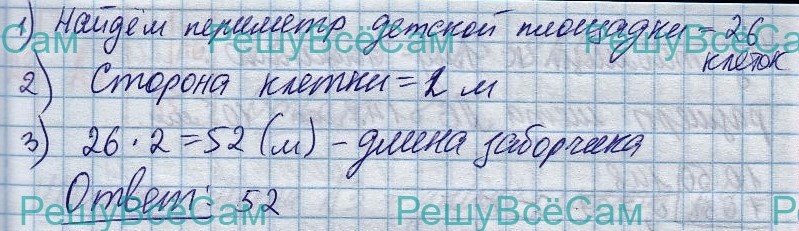 1) Найдём периметр детской площадки = 26
клеток
2) Сторона клетки = 2 м
3) 26 · 2 = 52 (м) - длина заборчика
Ответ: 52
РешуВсёСам РешуВсёСам РешуВсёСам
РешуВсёСам РешуВсёСам Р